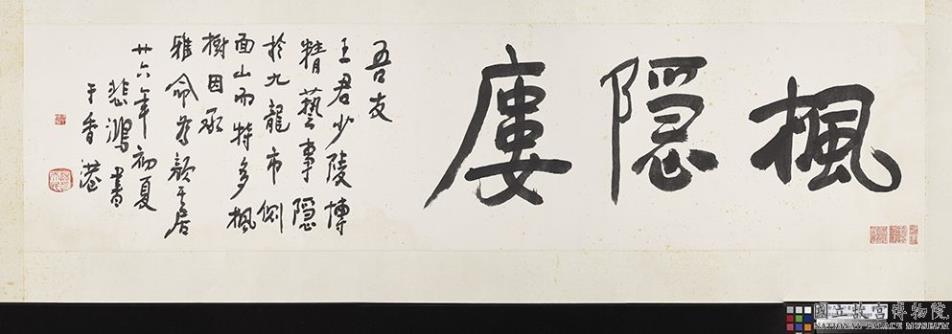 楓隱廔
吾友
王君少陵博
精藝事隱
於九龍市側
面山而特多楓
樹因承
雅命為顏其居
廿六年初夏
悲鴻書
于香港
國立故宮博物院
NATIONAL PALACE MUSEUM